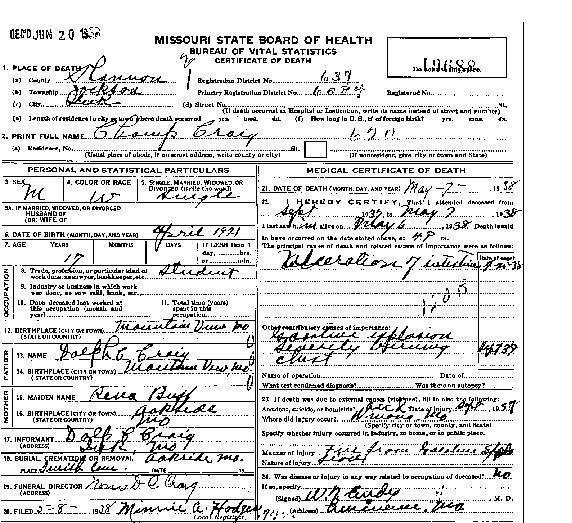 REC'D JUN 20 1938
MISSOURI STATE BOARD OF HEALTH
BUREAU OF VITAL STATISTICS
CERTIFICATE OF DEATH
1. PLACE OF DEATH
(a) County Shannon
Registration District No. 637
(b) Township Jackson
Primary Registration District No.
Registered No.
(c) City
(d) Street No.
(If death occurred in Hospital or Institution, write its name instead of street and number)
(e) Length of residence in city or town where death occurred yrs. mos. ds. (f) How long in U. S., if of foreign birth? yrs. mos. ds.
2. PRINT FULL NAME Champ Craig
(a) Residence, No. St.
(Usual place of abode, if no street address, write county or city)
(If nonresident, give city or town and State)
PERSONAL AND STATISTICAL PARTICULARS
3. SEX M
4. COLOR OR RACE W
5. SINGLE, MARRIED, WIDOWED, OR DIVORCED (write the word) Single
5A. IF MARRIED, WIDOWED, OR DIVORCED
HUSBAND OF
(OR) WIFE OF
6. DATE OF BIRTH (MONTH, DAY, AND YEAR) April 1921
7. AGE YEARS MONTHS DAYS If LESS than 1
17
OCCUPATION
8. Trade, profession, or particular kind of work done, sawyer, bookkeeper, etc. Student
9. Industry or business in which work was done, as saw mill, bank, etc.
10. Date deceased last worked at this occupation (month and year)
11. Total time (years) spent in this occupation
12. BIRTHPLACE (CITY OR TOWN) Mountain View Mo
(STATE OR COUNTRY)
FATHER
13. NAME Dolph E Craig
14. BIRTHPLACE (CITY OR TOWN) Mountain View Mo
(STATE OR COUNTRY)
MOTHER
15. MAIDEN NAME Rena Buff
16. BIRTHPLACE (CITY OR TOWN) Oakside
(STATE OR COUNTRY) Mo
17. INFORMANT Dolph E Craig
(ADDRESS)
18. BURIAL, CREMATION, OR REMOVAL Oakside Mo.
PLACE DATE
19. FUNERAL DIRECTOR
(ADDRESS)
20. FILED 1938 Minnie A. Hodges
Local Registrar
MEDICAL CERTIFICATE OF DEATH
21. DATE OF DEATH (MONTH, DAY, AND YEAR) May - 7 - 1938
22. I HEREBY CERTIFY, That I attended deceased from
Sept 1937, to May 7 1938
I last saw him alive on May 6 1938 Death is said
to have occurred on the date stated above, at 4 P m.
The principal cause of death and related causes of importance were as follows:
Ulceration of intestine
Other contributory causes of importance:
Gasoline explosion
severely burning
chest
Name of operation Date of
What test confirmed diagnosis? Was there an autopsy?
23. If death was due to external causes (violence), fill in also the following:
Accident, suicide, or homicide? Date of injury Sept 1937
Where did injury occur? Winona Mo.
(Specify city or town, county, and State)
Specify whether injury occurred in industry, in home, or in public place.
Manner of injury Fire from Gasoline
Nature of injury
24. Was disease or injury in any way related to occupation of deceased? No.
If so, specify
(Signed) M. D.
(Address) Eminence, Mo